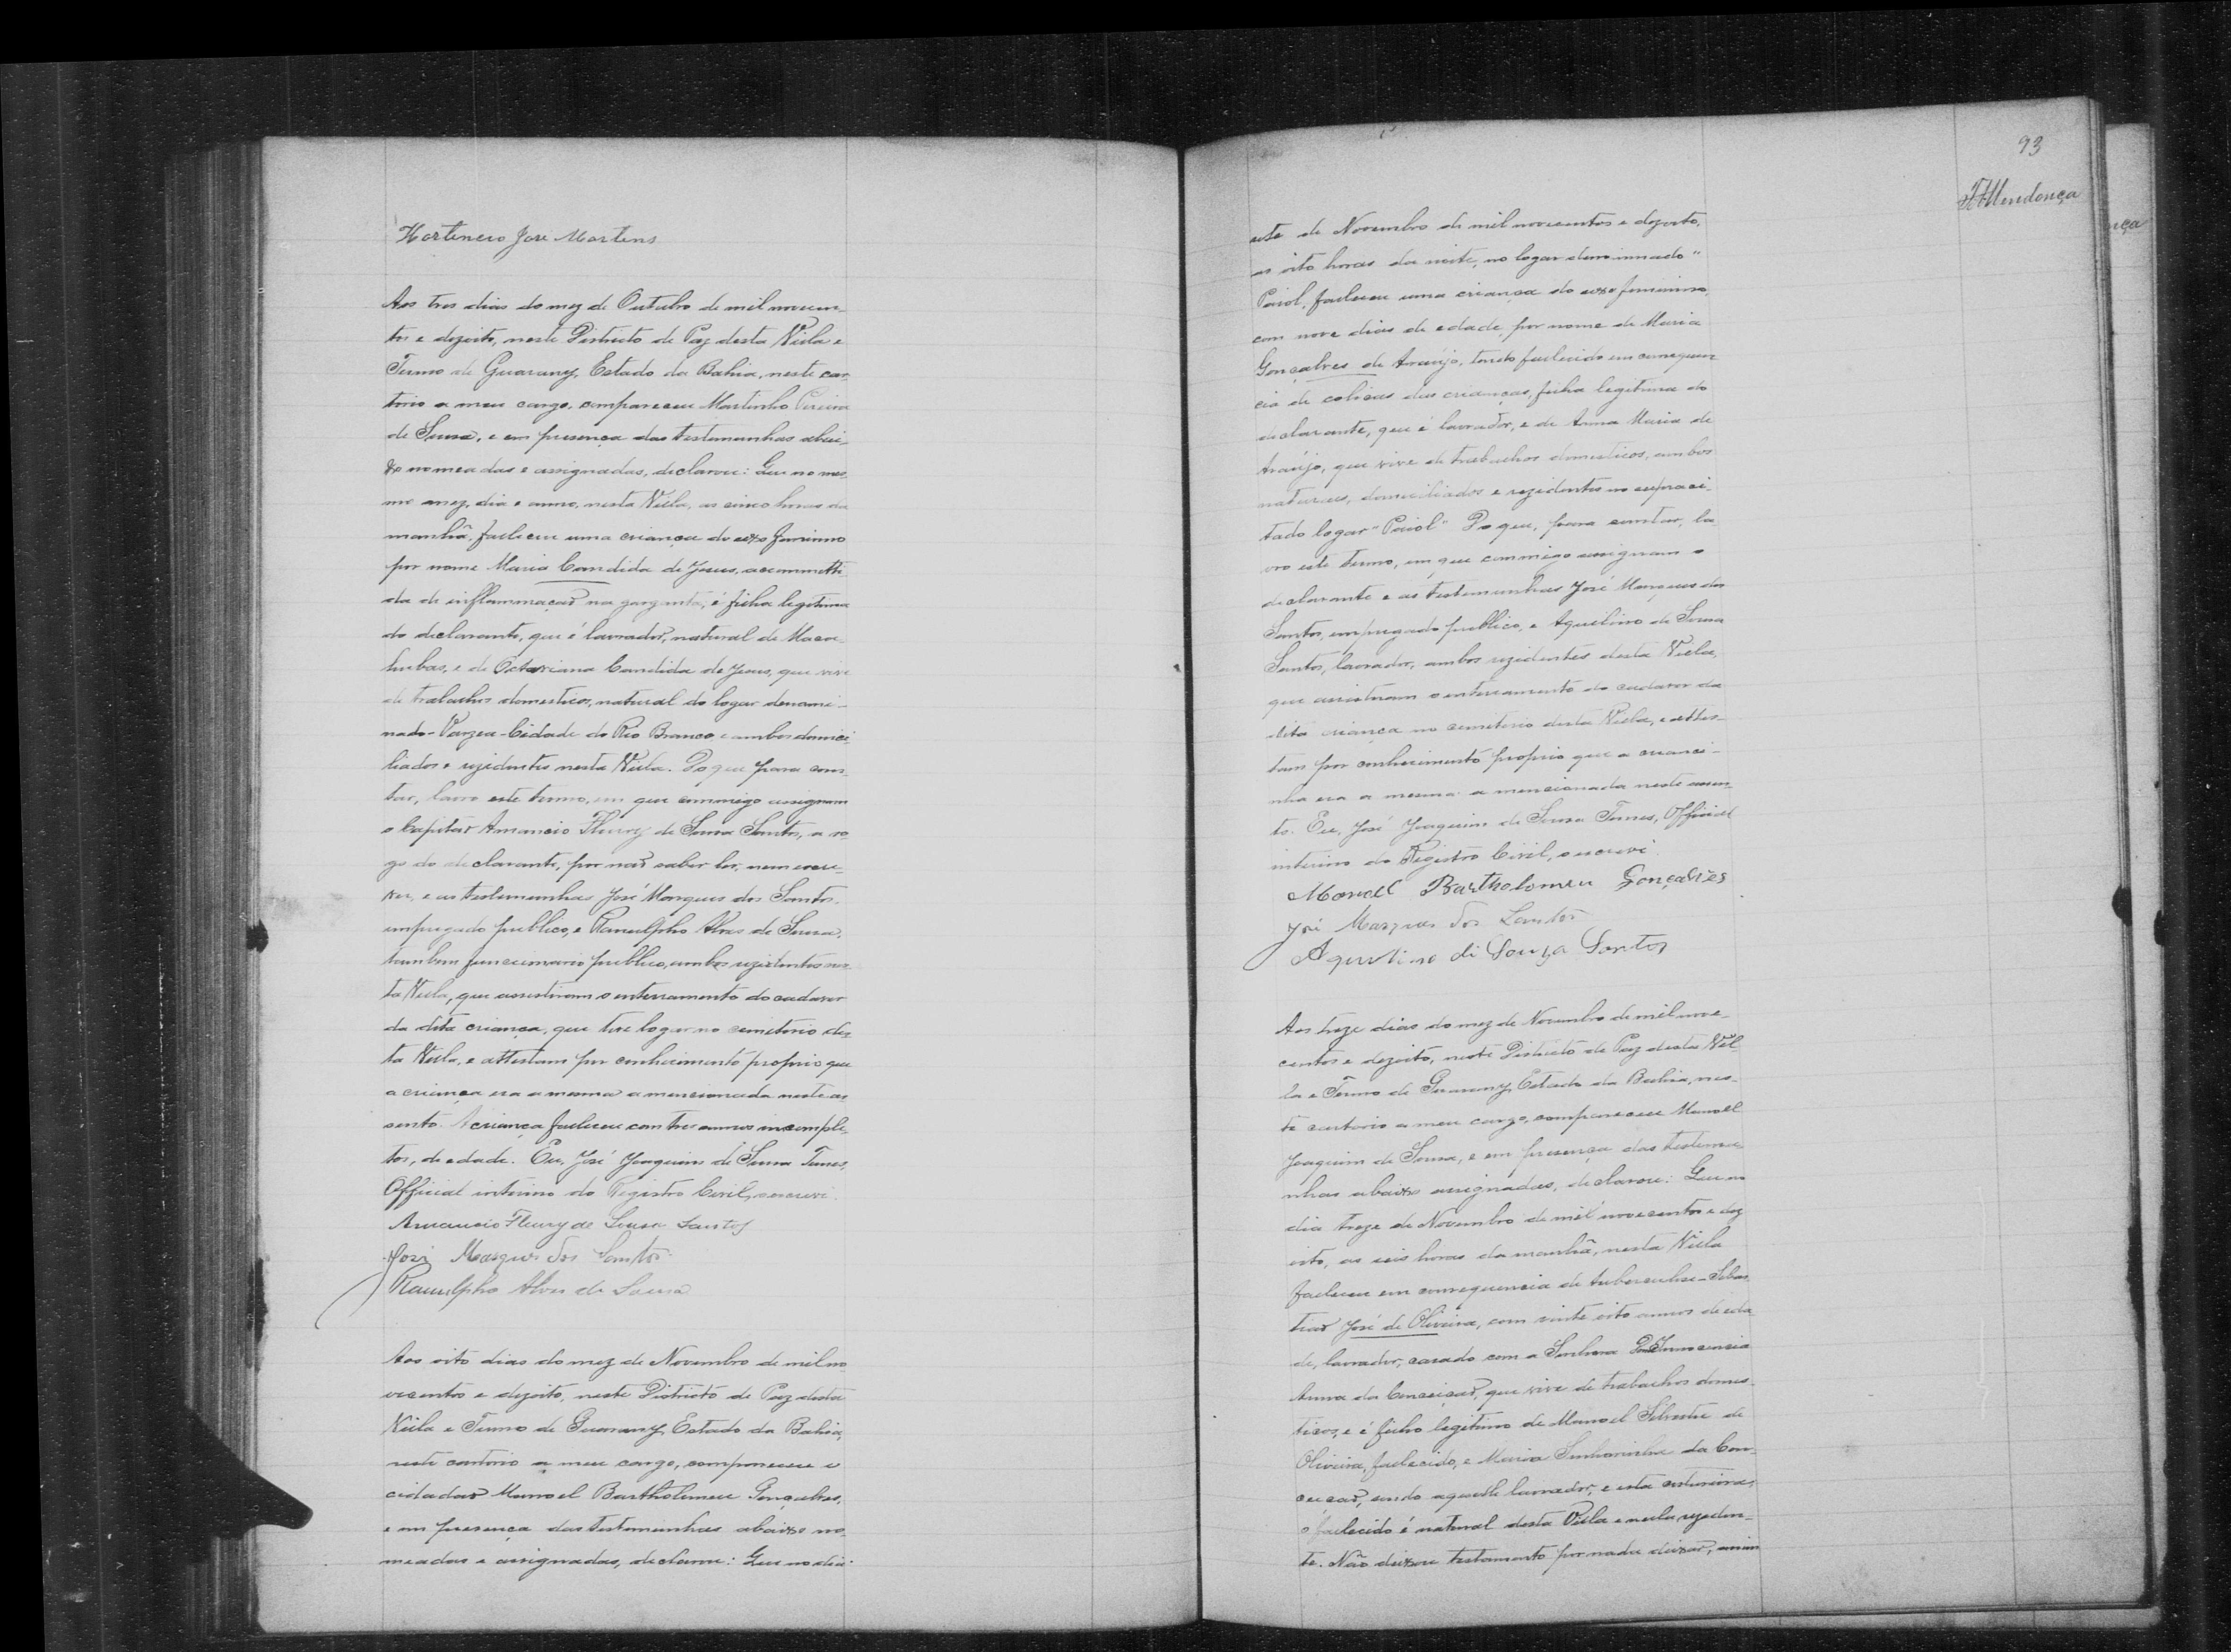 Hortencio José Martins
Aos tres dias do mez de Outubro de mil novecen-
tos e dezoito, neste Districto de Paz desta Villa e
Termo de Guarany, Estado da Bahia, neste car
torio a meu cargo, compareceu Martinho Pereira
de Sousa, e em presença das testemunhas abai-
xo nomeadas e assignadas, declarou: Que no mes
mo mez, dia e anno, nesta Villa, as cinco horas da
manhã, falleceu uma criança do sexo feminino
por nome Maria Candida de Jesus, accommetti
da de inflammação na garganta, é filha legitima
do declarante, que é lavrador, natural de Macau-
hubas, e de Octaviana Candida de Jesus, que vive
de trabalhos domesticos, natural do logar denomi-
nado - Varzea - Cidade do Rio Branco e ambos domici-
liados e rezidentes nesta Villa. Do que para cons-
tar, lavro este termo, em que commigo assignam
o Capitão Amancio Fleury de Sousa Santos, a ro
go do declarante, por não saber ler, nem escre-
ver, e as testemunhas José Marques dos Santos,
empregado publico, e Ranulpho Alves de Sousa,
tambem funccionario publico, ambos rezidentes nes-
ta Villa, que assistiram o enterramento do cadaver
da dita criança, que teve logar no cemiterio des-
ta Villa, e attestam por conhecimento proprio que
a criança era a mesma a mencionada neste as
sento. A criança falleceu com tres annos incomple-
tos, de edade. Eu, José Joaquim de Sousa Tunes,
Official interino do Registro Civil, o escrevi.
Amancio Fleury de Sousa Santos
José Marques dos Santos
Ranulpho Alves de Sousa
Aos oito dias do mez de Novembro de mil no
vecentos e dezoito, neste Districto de Paz desta
Villa e Termo de Guarany, Estado da Bahia,
neste cartorio a meu cargo, compareceu o
cidadão Manoel Bartholomeu Gonçalves,
e em presença das testemunhas abaixo no
meadas e assignadas, declarou: Que no dia
93
Mendonça
sete de Novembro de mil novecentos e dezoito,
as oito horas da noite, no logar denominado "
Paiol, falleceu uma criança do sexo feminino,
com nove dias de edade, por nome de Maria
Gonçalves de Araújo, tendo fallecido em consequen
cia de colicas das crianças, filha legitima do
declarante, que é lavrador, e de Anna Maria de
Araújo, que vive de trabalhos domesticos, ambos
naturaes, domiciliados e rezidentes no supraci-
tado logar "Paiol" Do que, para constar, la
vro este termo, em que commigo assignam o
declarante e as testemunhas José Marques dos
Santos, empregado publico, e Aquilino de Sousa
Santos, lavrador, ambos rezidentes desta Villa,
que assistiram o enterramento do cadaver da
dita criança no cemiterio desta Villa, e attes-
tam por conhecimento proprio que a crianci-
nha era a mesma a mencionada neste assen-
to. Eu, José Joaquim de Sousa Tunes, Official
interino do Registro Civil, o escrevi.
Manoel Bartholomeu Gonçalves
José Marques dos Santos
Aquilino di Souza Santos
Aos treze dias do mez de Novembro de mil nove-
centos e dezoito, neste Districto de Paz desta Vil
la e Termo de Guarany, Estado da Bahia, nes-
te cartorio a meu cargo, compareceu Manoel
Joaquim de Sousa, e em presença das testemu-
nhas abaixo assignadas, declarou: Que no
dia treze de Novembro de mil novecentos e dez
oito, as seis horas da manhã, nesta Villa
falleceu em consequencia de tuberculose - Sebas
tião José de Oliveira, com vinte oito annos de eda
de, lavrador, casado com a Senhora Innocencia
Anna da Conceição, que vive de trabalhos domes-
ticos, e é filho legitimo de Manoel Silvestre de
Oliveira, fallecido, e Maria Senhorinha da Con-
ceicão, sendo aquelle lavrador, e esta costureira;
o fallecido é natural desta Villa e nella reziden-
te. Não deixou testamento por nada deixar, assim